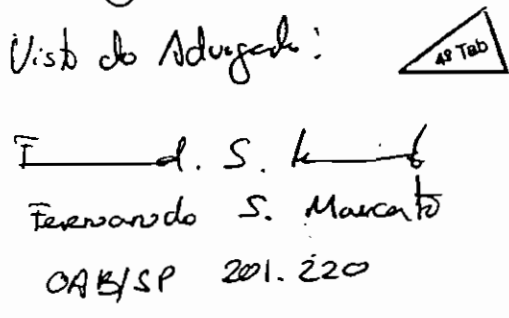 Visto do Advogado:
4º Tab
Fernando S. Marcato
OAB/SP 201.220